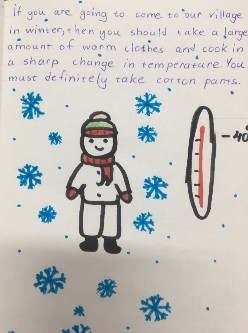 if you are going to come to our village
in winter, then you should take a large
amount of warm clothes and cook in
a sharp change in temperature. You
must definitely take cotton pants.
-40°